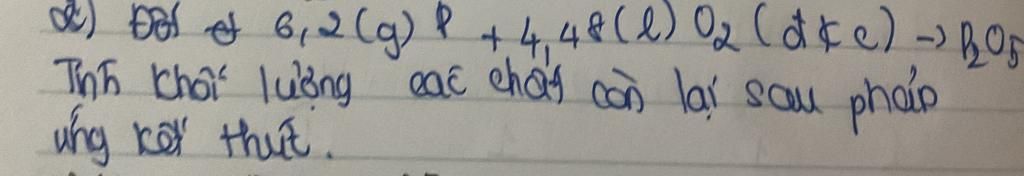 a) Đốt 6,2(g) P + 4,48(l) O2 (đkc) -> P2O5
Tính khối lượng các chất còn lại sau phản
ứng kết thúc.